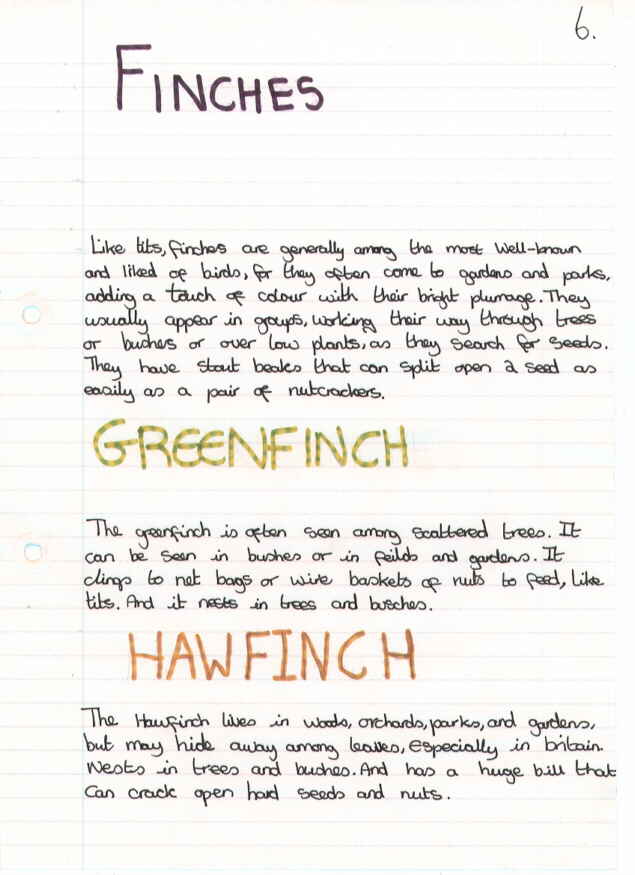 6.
FINCHES
Like tits, finches are generally among the most well-known
and liked of birds, for they often come to gardens and parks,
adding a touch of colour with their bright plumage. They
usually appear in goups, working their way through trees
or bushes or over low plants, as they search for seeds.
They have stout beaks that can split open a seed as
easily as a pair of nutcrackers.
GREENFINCH
The greenfinch is often seen among scattered trees. It
can be seen in bushes or in feilds and gardens. It
clings to net bags or wire baskets of nuts to feed, like
tits. And it nests in trees and busches.
HAWFINCH
The Hawfinch lives in woods, orchards, parks, and gardens,
but may hide away among leaves, especially in britain.
Nests in trees and bushes. And has a huge bill that
can crack open hard seeds and nuts.